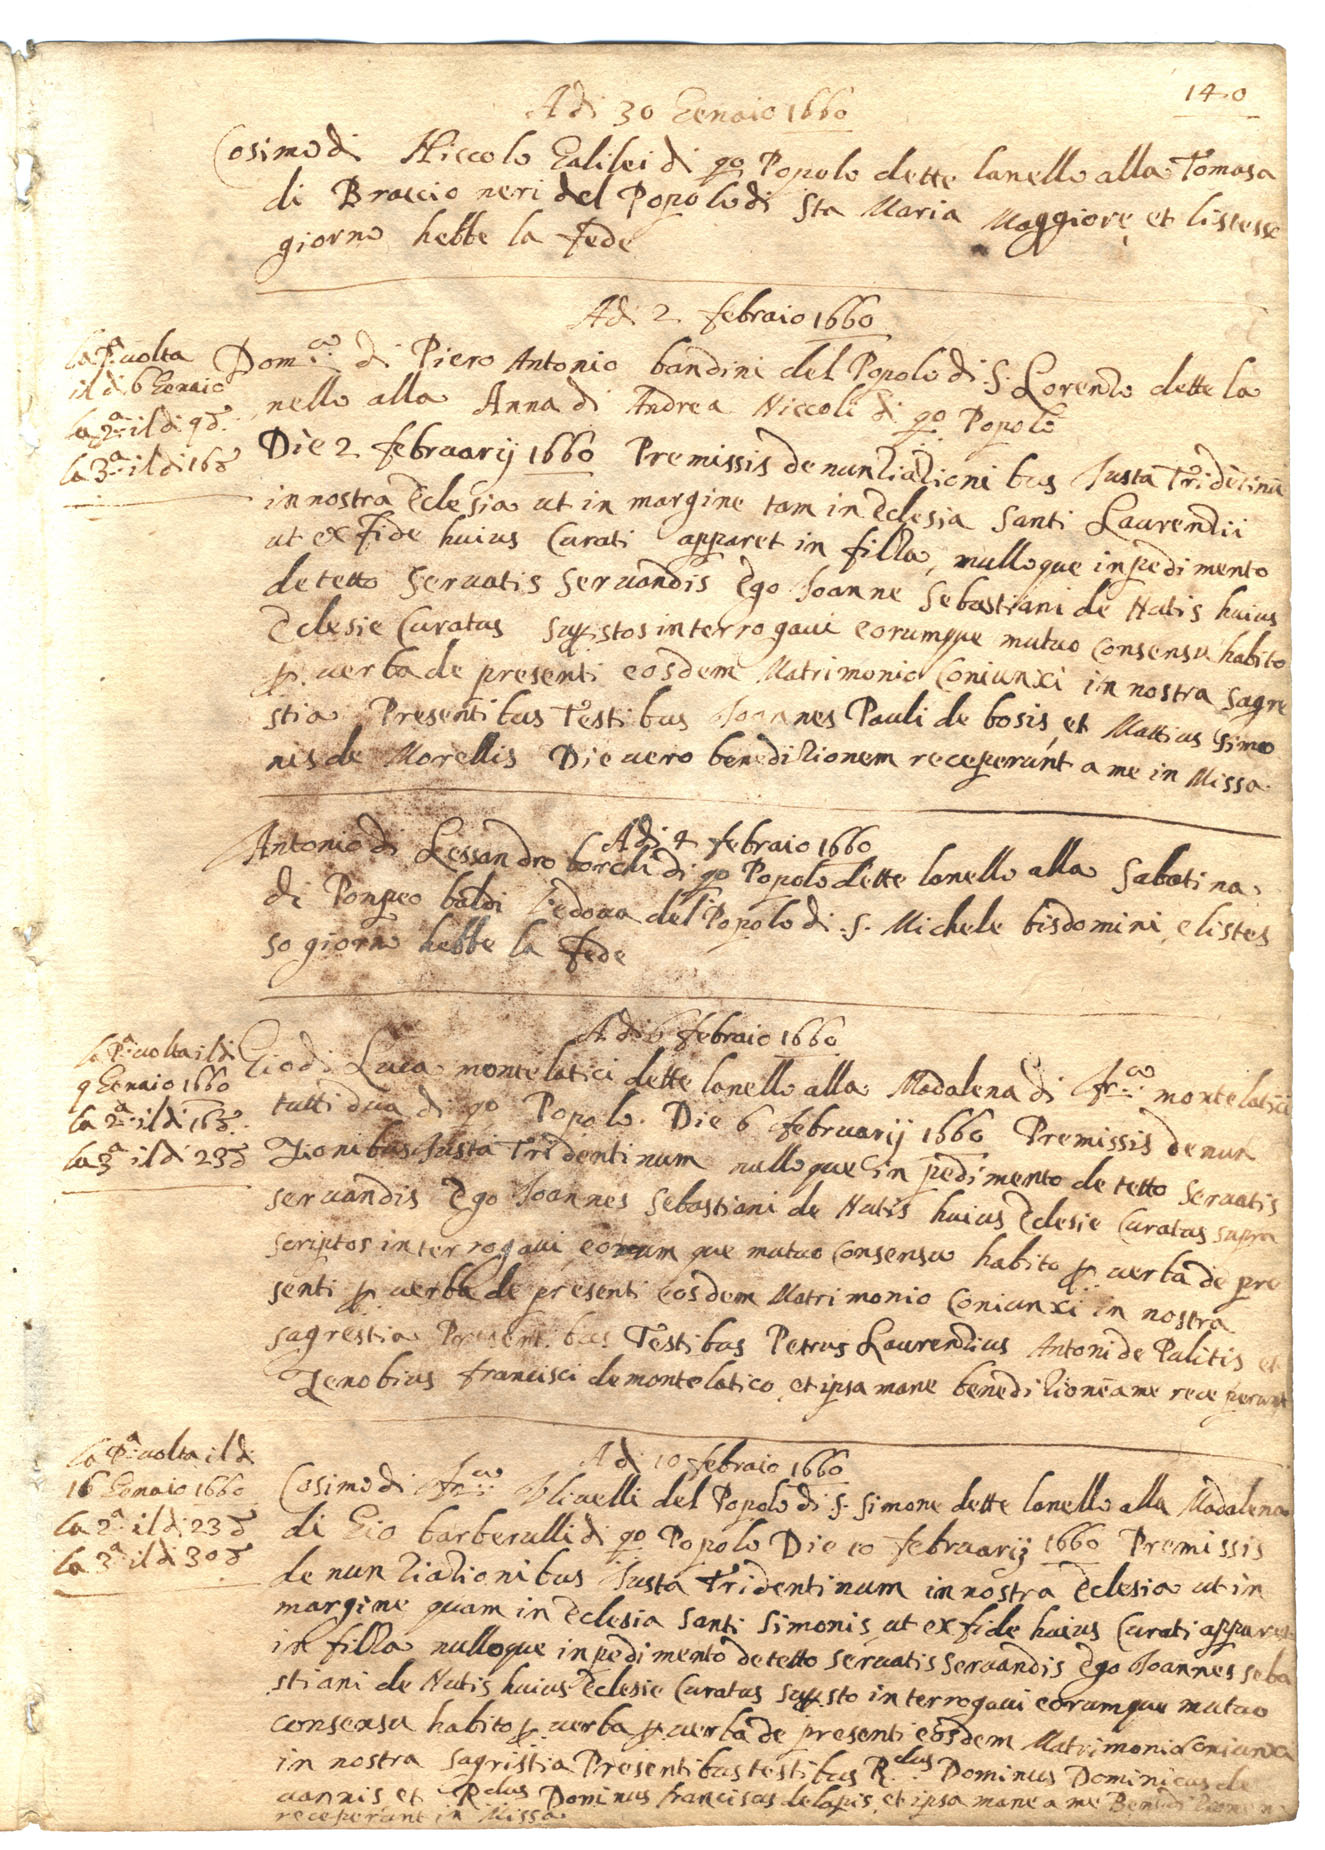 140
Adi 30 Genaio 1660
Cosimo di Niccolo Galilei di qo Popolo dette lanello alla Tomasa
di Braccio neri del Popolo di Sta Maria Maggiore, et listesso
giorno hebbe la fede
Adi 2 febraio 1660
la Pa uolta
il di 6 Genaio
la 2a il di 9 d.
la 3a il di 16 d
Domco di Piero Antonio bandini del Popolo di S. Lorenzo dette la
nello alla Anna di Andrea Niccoli di qo Popolo
Die 2 februarij 1660 Premissis denuntiationibus Justa Tridetinu
in nostra Eclesia ut in margine tam in Eclesia Santi Laurentii
ut ex fide huius Curati apparet in filza, nulloque inpedimento
detetto Seruatis Seruandis Ego Joanne Sebastiani de Natis huius
Eclesie Curatus supstos interrogaui eorumque mutuo Consensu habito
p. uerba de presenti eosdem Matrimonio Coniunxi in nostra Sagre
stia Presentibus Testibus Joannes Pauli de bosis, et Mattius Simo
nis de Morellis Die uero beneditionem receperunt a me in Missa.
Adi 4 febraio 1660
Antonio di Lessandro borchi di qo Popolo dette lanello alla Sabatina
di Ponpeo baldi Vedoua del Popolo di .S. Michele bisdomini, e listes
so giorno hebbe la fede
Adi 6 febraio 1660
la Pa uolta il di
9 Genaio 1660
la 2a il di 16 d.
la 3a il di 23 d
Gio di Luca montelatici dette lanello alla Madalena di Frco montelatici
tutti dua di qo Popolo. Die 6 februarij 1660 Premissis denun
tionibus Justa Tridentinum nulloque inpedimento detetto Seruatis
seruandis Ego Joannes Sebastiani de Natis huius Eclesie Curatus supra
scriptos interrogaui, eorum que mutuo Consensu habito p. uerba de pre
senti p. uerba de presenti eosdem Matrimonio Coniunxi in nostra
sagrestia Presentibus Testibus Petrus Laurentius Antoni de Palitis et
Zenobius francisci de montelatico, et ipsa mane beneditione a me receperunt
Adi 10 febraio 1660
la Pa uolta il di
16 Genaio 1660
la 2a il di 23 d
la 3a il di 30 d
Cosimo di Frco Vliuelli del Popolo di S. Simone dette lanello alla Madalena
di Gio barberulli di qo Popolo Die 10 februarij 1660 Premissis
denuntiationibus Justa Tridentinum in nostra Eclesia ut in
margine quam in Eclesia Santi Simonis, ut ex fide huius Curati apparet
in filza nulloque inpedimento detetto Seruatis Seruandis Ego Joannes Seba
stiani de Natis huius Eclesie Curatus supsto interrogaui eorumque mutuo
consensu habito p. uerba p. uerba de presenti eosdem Matrimonio Coniunxi
in nostra sagristia Presentibus testibus R.dus Dominus Dominicus de
uannis et R.dus Dominus franciscus de lapis, et ipsa mane a me Beneditionem
receperunt in Missa